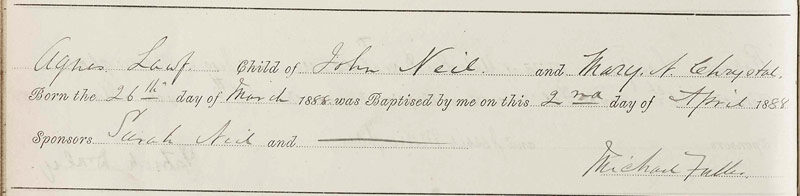 Agnes Lawf. Child of John Neil. and Mary. A. Chrystal.
Born the 26th day of March 1888 was Baptised by me on this 2nd day of April 1888
Sponsors Sarah Neil and
Michael Fuller